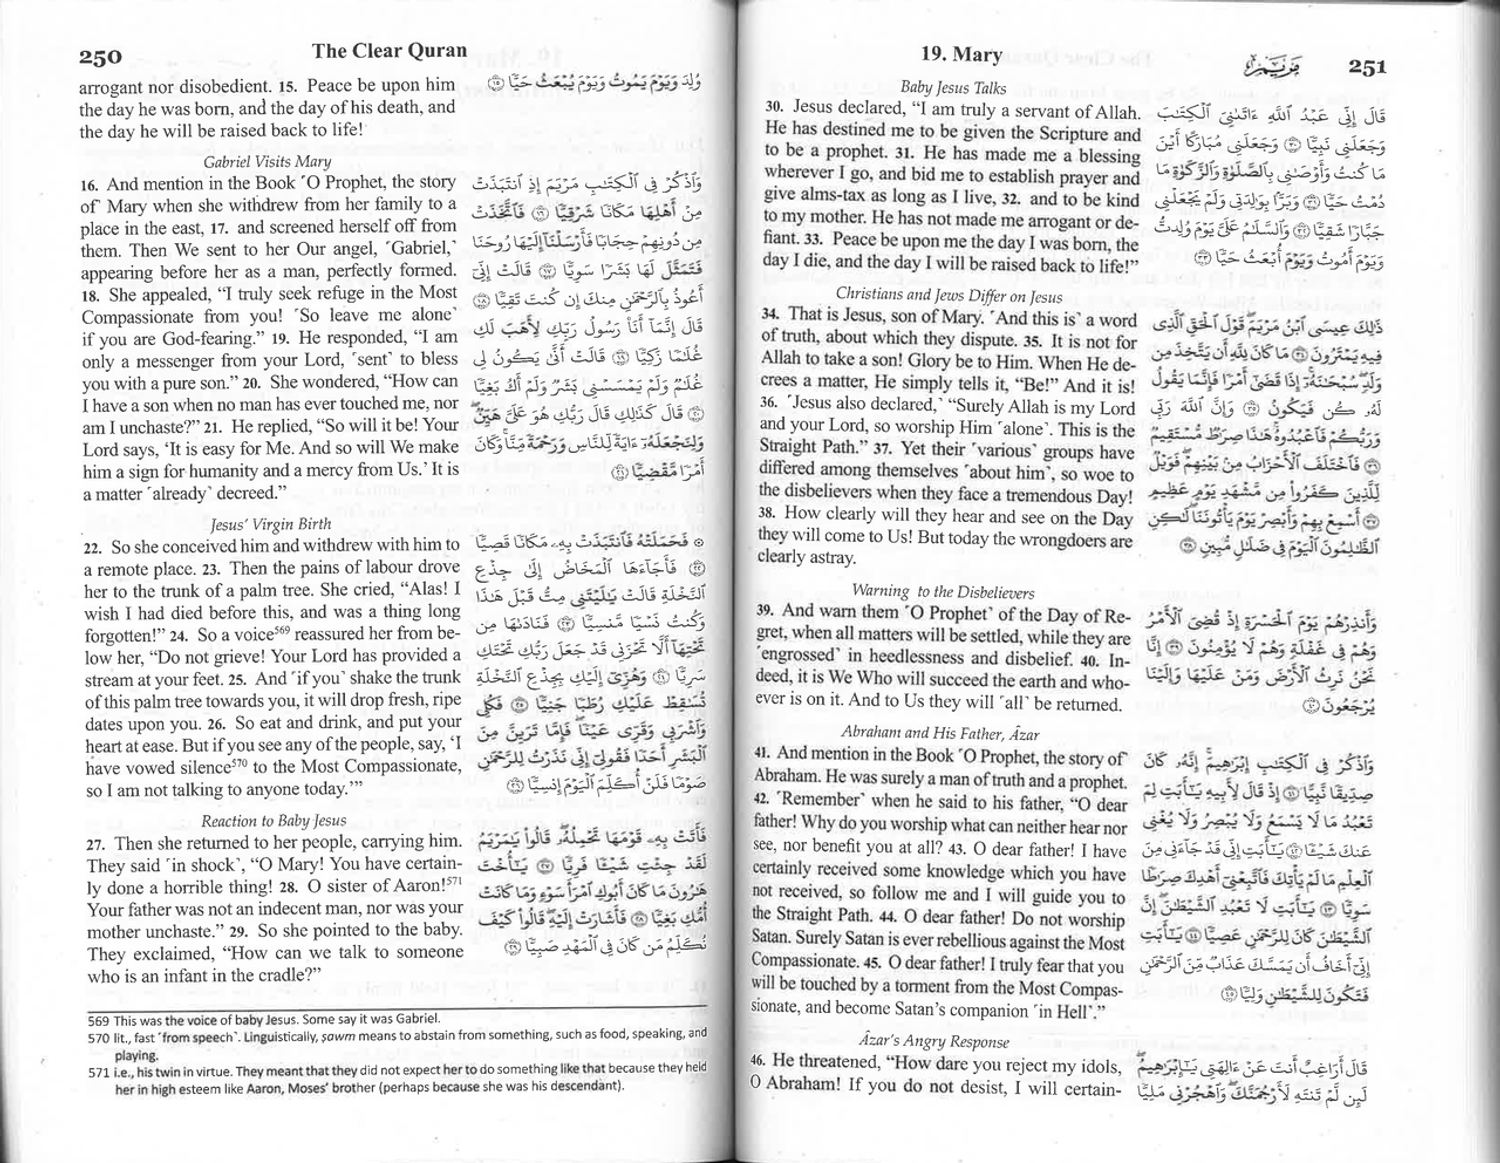 250
The Clear Quran
arrogant nor disobedient. 15. Peace be upon him
the day he was born, and the day of his death, and
the day he will be raised back to life!
وُلِدَ وَيَوْمَ يَمُوتُ وَيَوْمَ يُبْعَثُ حَيًّا ١٥
Gabriel Visits Mary
16. And mention in the Book ˹O Prophet, the story
of˺ Mary when she withdrew from her family to a
place in the east, 17. and screened herself off from
them. Then We sent to her Our angel, ˹Gabriel,˺
appearing before her as a man, perfectly formed.
18. She appealed, “I truly seek refuge in the Most
Compassionate from you! ˹So leave me alone˺
if you are God-fearing.” 19. He responded, “I am
only a messenger from your Lord, ˹sent˺ to bless
you with a pure son.” 20. She wondered, “How can
I have a son when no man has ever touched me, nor
am I unchaste?” 21. He replied, “So will it be! Your
Lord says, ‘It is easy for Me. And so will We make
him a sign for humanity and a mercy from Us.’ It is
a matter ˹already˺ decreed.”
وَٱذْكُرْ فِى ٱلْكِتَٰبِ مَرْيَمَ إِذِ ٱنتَبَذَتْ
مِنْ أَهْلِهَا مَكَانًا شَرْقِيًّا ١٦ فَٱتَّخَذَتْ
مِن دُونِهِمْ حِجَابًا فَأَرْسَلْنَآ إِلَيْهَا رُوحَنَا
فَتَمَثَّلَ لَهَا بَشَرًا سَوِيًّا ١٧ قَالَتْ إِنِّىٓ
أَعُوذُ بِٱلرَّحْمَٰنِ مِنكَ إِن كُنتَ تَقِيًّا ١٨
قَالَ إِنَّمَآ أَنَا۠ رَسُولُ رَبِّكِ لِأَهَبَ لَكِ
غُلَٰمًا زَكِيًّا ١٩ قَالَتْ أَنَّىٰ يَكُونُ لِى
غُلَٰمٌ وَلَمْ يَمْسَسْنِى بَشَرٌ وَلَمْ أَكُ بَغِيًّا
٢٠ قَالَ كَذَٰلِكِ قَالَ رَبُّكِ هُوَ عَلَىَّ هَيِّنٌ
وَلِنَجْعَلَهُۥٓ ءَايَةً لِّلنَّاسِ وَرَحْمَةً مِّنَّا وَكَانَ
أَمْرًا مَّقْضِيًّا ٢١
Jesus’ Virgin Birth
22. So she conceived him and withdrew with him to
a remote place. 23. Then the pains of labour drove
her to the trunk of a palm tree. She cried, “Alas! I
wish I had died before this, and was a thing long
forgotten!” 24. So a voice569 reassured her from be-
low her, “Do not grieve! Your Lord has provided a
stream at your feet. 25. And ˹if you˺ shake the trunk
of this palm tree towards you, it will drop fresh, ripe
dates upon you. 26. So eat and drink, and put your
heart at ease. But if you see any of the people, say, ‘I
have vowed silence570 to the Most Compassionate,
so I am not talking to anyone today.’”
۞ فَحَمَلَتْهُ فَٱنتَبَذَتْ بِهِۦ مَكَانًا قَصِيًّا
٢٢ فَأَجَآءَهَا ٱلْمَخَاضُ إِلَىٰ جِذْعِ
ٱلنَّخْلَةِ قَالَتْ يَٰلَيْتَنِى مِتُّ قَبْلَ هَٰذَا
وَكُنتُ نَسْيًا مَّنسِيًّا ٢٣ فَنَادَىٰهَا مِن
تَحْتِهَآ أَلَّا تَحْزَنِى قَدْ جَعَلَ رَبُّكِ تَحْتَكِ
سَرِيًّا ٢٤ وَهُزِّىٓ إِلَيْكِ بِجِذْعِ ٱلنَّخْلَةِ
تُسَٰقِطْ عَلَيْكِ رُطَبًا جَنِيًّا ٢٥ فَكُلِى
وَٱشْرَبِى وَقَرِّى عَيْنًا فَإِمَّا تَرَيِنَّ مِنَ
ٱلْبَشَرِ أَحَدًا فَقُولِىٓ إِنِّى نَذَرْتُ لِلرَّحْمَٰنِ
صَوْمًا فَلَنْ أُكَلِّمَ ٱلْيَوْمَ إِنسِيًّا ٢٦
Reaction to Baby Jesus
27. Then she returned to her people, carrying him.
They said ˹in shock˺, “O Mary! You have certain-
ly done a horrible thing! 28. O sister of Aaron!571
Your father was not an indecent man, nor was your
mother unchaste.” 29. So she pointed to the baby.
They exclaimed, “How can we talk to someone
who is an infant in the cradle?”
فَأَتَتْ بِهِۦ قَوْمَهَا تَحْمِلُهُۥ قَالُوا۟ يَٰمَرْيَمُ
لَقَدْ جِئْتِ شَيْـًٔا فَرِيًّا ٢٧ يَٰٓأُخْتَ
هَٰرُونَ مَا كَانَ أَبُوكِ ٱمْرَأَ سَوْءٍ وَمَا كَانَتْ
أُمُّكِ بَغِيًّا ٢٨ فَأَشَارَتْ إِلَيْهِ قَالُوا۟ كَيْفَ
نُكَلِّمُ مَن كَانَ فِى ٱلْمَهْدِ صَبِيًّا ٢٩
569 This was the voice of baby Jesus. Some say it was Gabriel.
570 lit., fast ˹from speech˺. Linguistically, ṣawm means to abstain from something, such as food, speaking, and
playing.
571 i.e., his twin in virtue. They meant that they did not expect her to do something like that because they held
her in high esteem like Aaron, Moses’ brother (perhaps because she was his descendant).
19. Mary
مَرْيَم
251
Baby Jesus Talks
30. Jesus declared, “I am truly a servant of Allah.
He has destined me to be given the Scripture and
to be a prophet. 31. He has made me a blessing
wherever I go, and bid me to establish prayer and
give alms-tax as long as I live, 32. and to be kind
to my mother. He has not made me arrogant or de-
fiant. 33. Peace be upon me the day I was born, the
day I die, and the day I will be raised back to life!”
قَالَ إِنِّى عَبْدُ ٱللَّهِ ءَاتَىٰنِىَ ٱلْكِتَٰبَ
وَجَعَلَنِى نَبِيًّا ٣٠ وَجَعَلَنِى مُبَارَكًا أَيْنَ
مَا كُنتُ وَأَوْصَٰنِى بِٱلصَّلَوٰةِ وَٱلزَّكَوٰةِ مَا
دُمْتُ حَيًّا ٣١ وَبَرًّۢا بِوَٰلِدَتِى وَلَمْ يَجْعَلْنِى
جَبَّارًا شَقِيًّا ٣٢ وَٱلسَّلَٰمُ عَلَىَّ يَوْمَ وُلِدتُّ
وَيَوْمَ أَمُوتُ وَيَوْمَ أُبْعَثُ حَيًّا ٣٣
Christians and Jews Differ on Jesus
34. That is Jesus, son of Mary. ˹And this is˺ a word
of truth, about which they dispute. 35. It is not for
Allah to take a son! Glory be to Him. When He de-
crees a matter, He simply tells it, “Be!” And it is!
36. ˹Jesus also declared,˺ “Surely Allah is my Lord
and your Lord, so worship Him ˹alone˺. This is the
Straight Path.” 37. Yet their ˹various˺ groups have
differed among themselves ˹about him˺, so woe to
the disbelievers when they face a tremendous Day!
38. How clearly will they hear and see on the Day
they will come to Us! But today the wrongdoers are
clearly astray.
ذَٰلِكَ عِيسَى ٱبْنُ مَرْيَمَ قَوْلَ ٱلْحَقِّ ٱلَّذِى
فِيهِ يَمْتَرُونَ ٣٤ مَا كَانَ لِلَّهِ أَن يَتَّخِذَ مِن
وَلَدٍ سُبْحَٰنَهُۥٓ إِذَا قَضَىٰٓ أَمْرًا فَإِنَّمَا يَقُولُ
لَهُۥ كُن فَيَكُونُ ٣٥ وَإِنَّ ٱللَّهَ رَبِّى
وَرَبُّكُمْ فَٱعْبُدُوهُ هَٰذَا صِرَٰطٌ مُّسْتَقِيمٌ
٣٦ فَٱخْتَلَفَ ٱلْأَحْزَابُ مِنۢ بَيْنِهِمْ فَوَيْلٌ
لِّلَّذِينَ كَفَرُوا۟ مِن مَّشْهَدِ يَوْمٍ عَظِيمٍ
٣٧ أَسْمِعْ بِهِمْ وَأَبْصِرْ يَوْمَ يَأْتُونَنَا لَٰكِنِ
ٱلظَّٰلِمُونَ ٱلْيَوْمَ فِى ضَلَٰلٍ مُّبِينٍ ٣٨
Warning to the Disbelievers
39. And warn them ˹O Prophet˺ of the Day of Re-
gret, when all matters will be settled, while they are
˹engrossed˺ in heedlessness and disbelief. 40. In-
deed, it is We Who will succeed the earth and who-
ever is on it. And to Us they will ˹all˺ be returned.
وَأَنذِرْهُمْ يَوْمَ ٱلْحَسْرَةِ إِذْ قُضِىَ ٱلْأَمْرُ
وَهُمْ فِى غَفْلَةٍ وَهُمْ لَا يُؤْمِنُونَ ٣٩ إِنَّا
نَحْنُ نَرِثُ ٱلْأَرْضَ وَمَنْ عَلَيْهَا وَإِلَيْنَا
يُرْجَعُونَ ٤٠
Abraham and His Father, Âzar
41. And mention in the Book ˹O Prophet, the story of˺
Abraham. He was surely a man of truth and a prophet.
42. ˹Remember˺ when he said to his father, “O dear
father! Why do you worship what can neither hear nor
see, nor benefit you at all? 43. O dear father! I have
certainly received some knowledge which you have
not received, so follow me and I will guide you to
the Straight Path. 44. O dear father! Do not worship
Satan. Surely Satan is ever rebellious against the Most
Compassionate. 45. O dear father! I truly fear that you
will be touched by a torment from the Most Compas-
sionate, and become Satan’s companion ˹in Hell˺.”
وَٱذْكُرْ فِى ٱلْكِتَٰبِ إِبْرَٰهِيمَ إِنَّهُۥ كَانَ
صِدِّيقًا نَّبِيًّا ٤١ إِذْ قَالَ لِأَبِيهِ يَٰٓأَبَتِ لِمَ
تَعْبُدُ مَا لَا يَسْمَعُ وَلَا يُبْصِرُ وَلَا يُغْنِى
عَنكَ شَيْـًٔا ٤٢ يَٰٓأَبَتِ إِنِّى قَدْ جَآءَنِى مِنَ
ٱلْعِلْمِ مَا لَمْ يَأْتِكَ فَٱتَّبِعْنِىٓ أَهْدِكَ صِرَٰطًا
سَوِيًّا ٤٣ يَٰٓأَبَتِ لَا تَعْبُدِ ٱلشَّيْطَٰنَ إِنَّ
ٱلشَّيْطَٰنَ كَانَ لِلرَّحْمَٰنِ عَصِيًّا ٤٤ يَٰٓأَبَتِ
إِنِّىٓ أَخَافُ أَن يَمَسَّكَ عَذَابٌ مِّنَ ٱلرَّحْمَٰنِ
فَتَكُونَ لِلشَّيْطَٰنِ وَلِيًّا ٤٥
Âzar’s Angry Response
46. He threatened, “How dare you reject my idols,
O Abraham! If you do not desist, I will certain-
قَالَ أَرَاغِبٌ أَنتَ عَنْ ءَالِهَتِى يَٰٓإِبْرَٰهِيمُ
لَئِن لَّمْ تَنتَهِ لَأَرْجُمَنَّكَ وَٱهْجُرْنِى مَلِيًّا